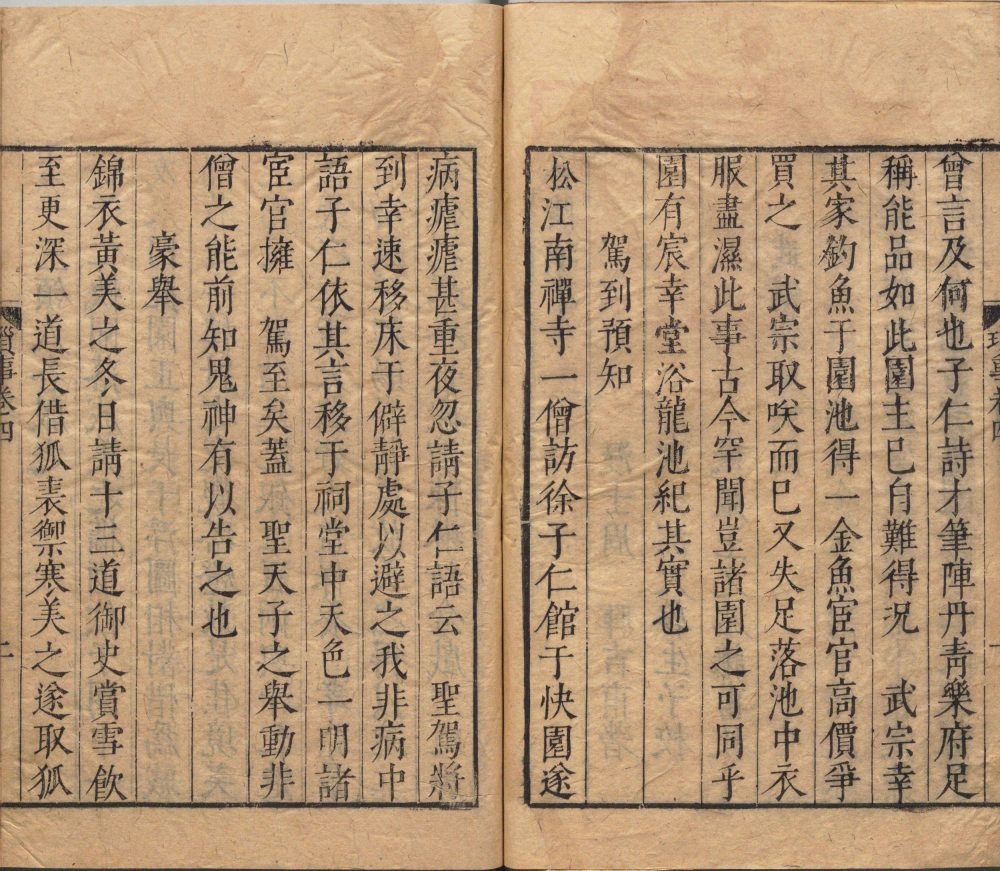 曾言及何也子仁詩才筆陣丹靑樂府足
稱能品如此園主巳自難得況　武宗幸
其家釣魚于園池得一金魚宦官高價爭
買之　武宗取咲而巳又失足落池中衣
服盡濕此事古今罕聞豈諸園之可同乎
園有宸幸堂浴龍池紀其實也
駕到預知
松江南禪寺一僧訪徐子仁館于快園遂
病瘧瘧甚重夜忽請子仁語云　聖駕將
到幸速移床于僻靜處以避之我非病中
語子仁依其言移于祠堂中天色一明諸
宦官擁　駕至矣蓋　聖天子之舉動非
僧之能前知鬼神有以告之也
豪舉
錦衣黃美之冬日請十三道御史賞雪飮
至更深一道長借狐裘禦寒美之遂取狐
瑣事卷四
二